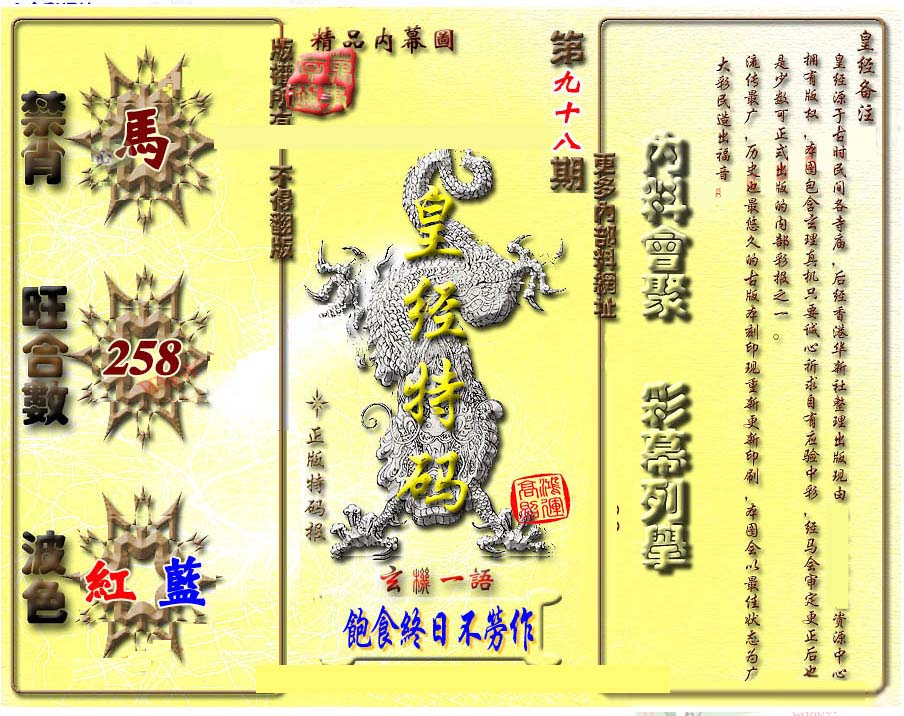 精品内幕圖
版權所有
不得翻版
第九十八期
更多内部料網址
禁肖
馬
旺合數
258
波色
紅 藍
皇经特码
正版特码报
鴻運高照
玄機一語
飽食終日不勞作
内料會聚
彩幕列舉
皇经备注
皇经源于古时民间各寺庙，后经香港华新社整理出版现由 资源中心
拥有版权，本图包含玄理真机只要诚心祈求自有应验中彩，经马会审定更正后也
是少数可正式出版的内部彩报之一。
流传最广，历史也最悠久的古版本刻印现重新更新印刷，本图会以最佳状态为广
大彩民造出福音